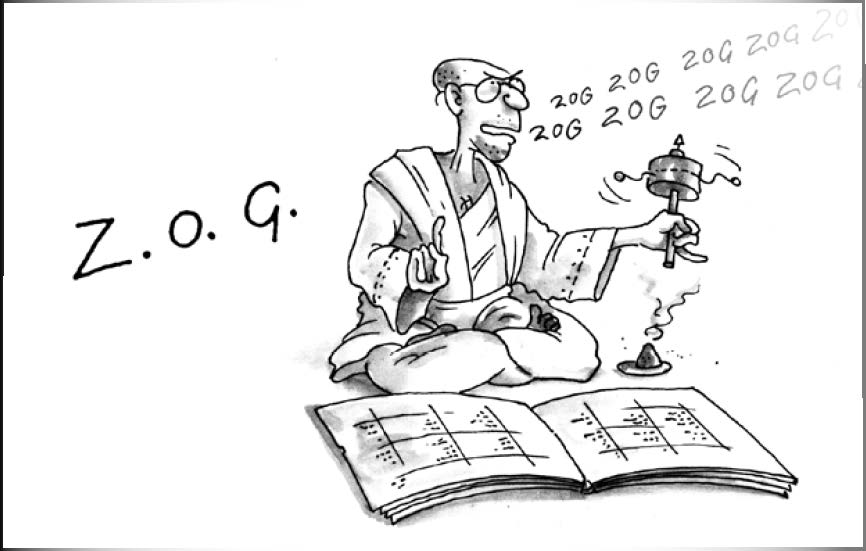 ZOG ZOG ZOG ZOG ZOG
ZOG ZOG ZOG ZOG
Z.O.G.